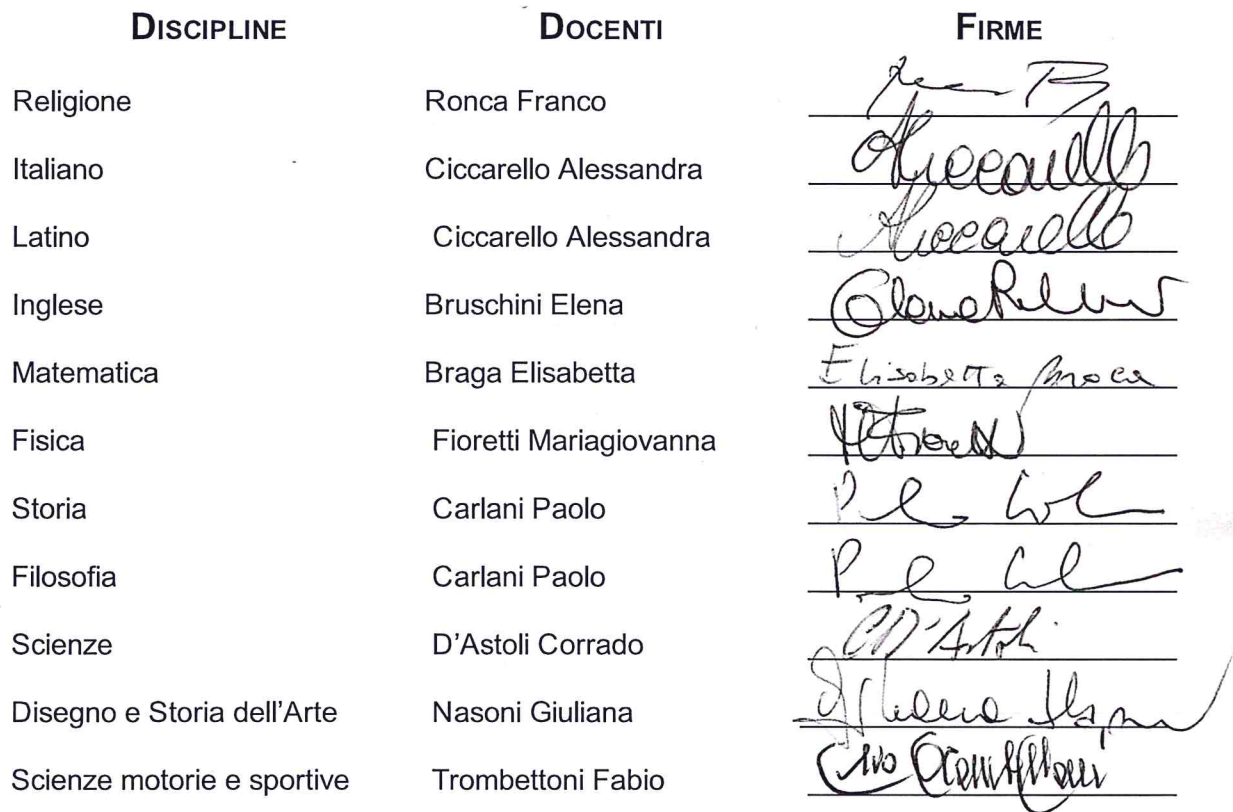 DISCIPLINE DOCENTI FIRME
Religione Ronca Franco
Italiano Ciccarello Alessandra Aliccarello
Latino Ciccarello Alessandra Aliccarello
Inglese Bruschini Elena Elena
Matematica Braga Elisabetta Elisabetta
Fisica Fioretti Mariagiovanna
Storia Carlani Paolo
Filosofia Carlani Paolo
Scienze D'Astoli Corrado CD'Astoli
Disegno e Storia dell'Arte Nasoni Giuliana
Scienze motorie e sportive Trombettoni Fabio